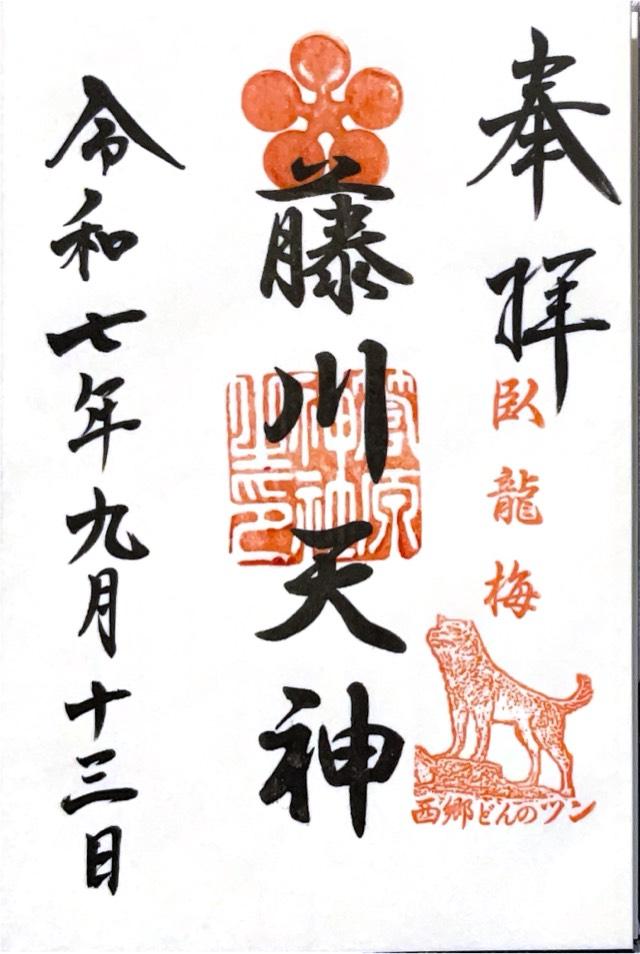 奉拝
臥龍梅
西郷どんのツン
藤川天神
菅原
神社
之印
令和七年九月十三日